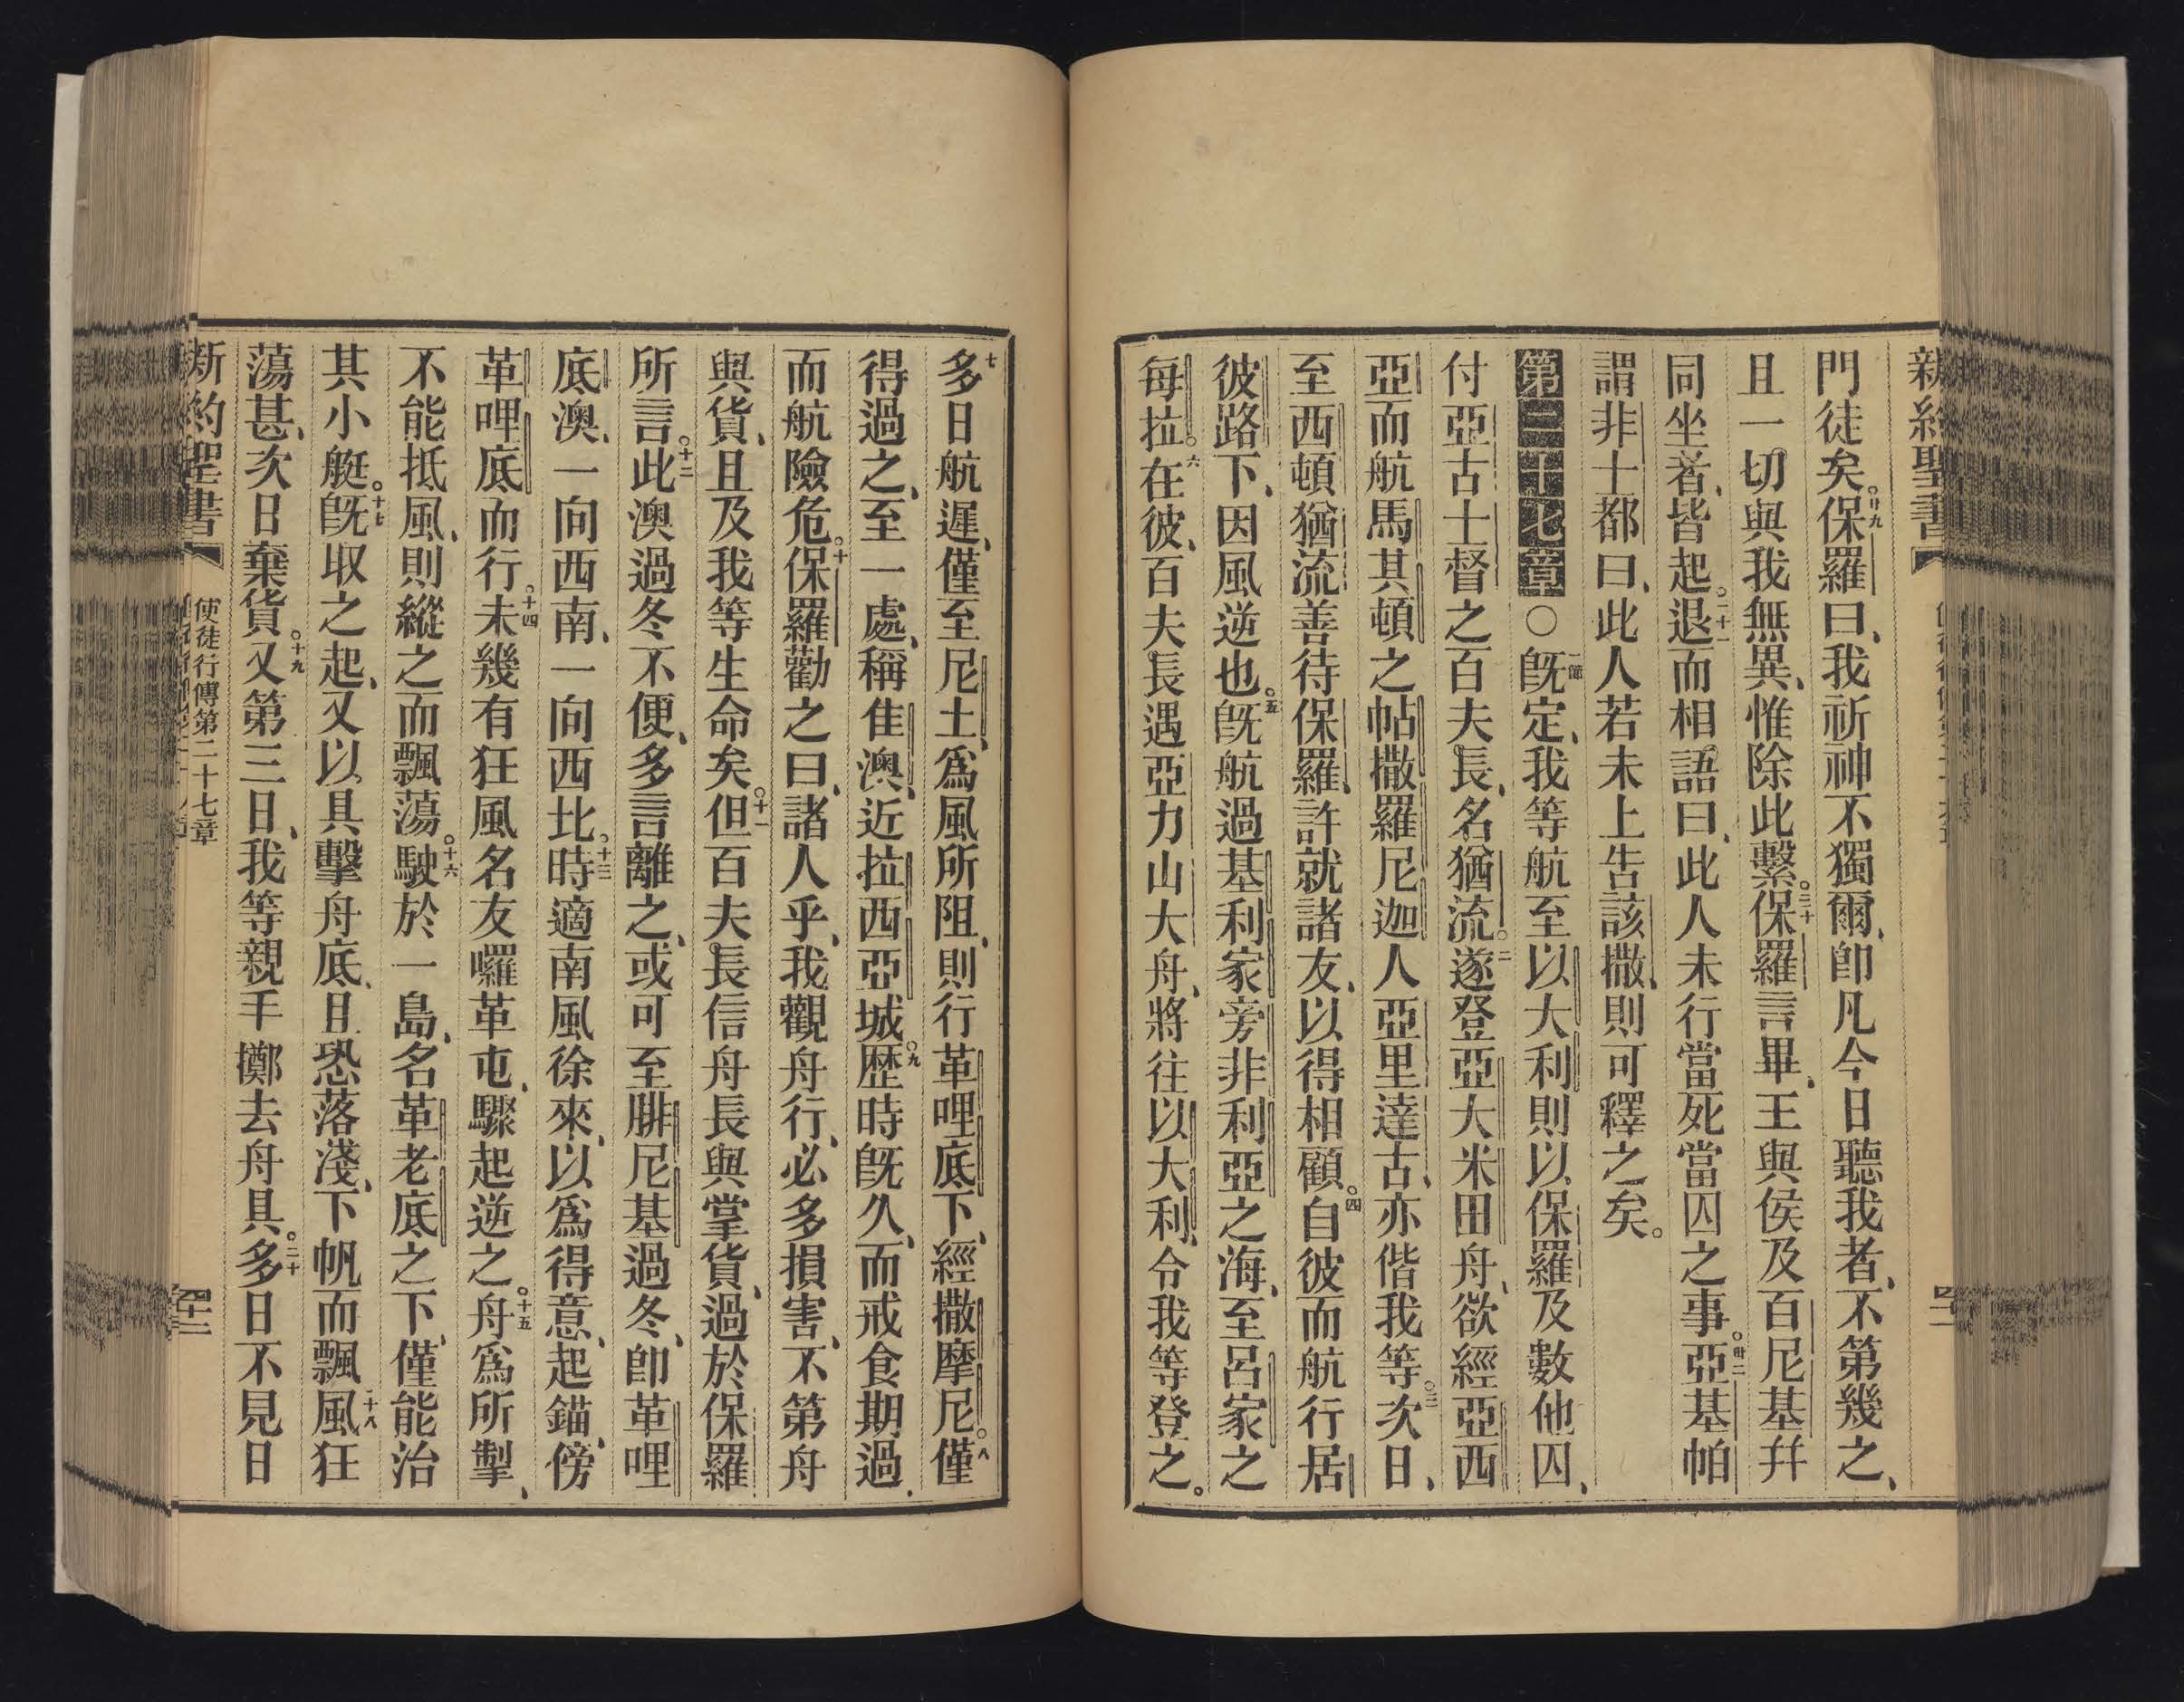 新約聖書
門徒矣。廿九保羅曰、我祈神不獨爾、卽凡今日聽我者、不第幾之、
且一切與我無異、惟除此繫。三十保羅言畢、王與侯及百尼基幷
同坐者、皆起。三十一退而相語曰、此人未行當死當囚之事。卅二亞基帕
謂非士都曰、此人若未上告該撒、則可釋之矣。
第二十七章○一節旣定、我等航至以大利則以保羅及數他囚、
付亞古士督之百夫長、名猶流。二遂登亞大米田舟、欲經亞西
亞而航馬其頓之帖撒羅尼迦人亞里達古、亦偕我等。三次日、
至西頓猶流善待保羅、許就諸友、以得相顧。四自彼而航行居
彼路下、因風逆也。五旣航過基利家旁非利亞之海、至呂家之
每拉。六在彼、百夫長遇亞力山大舟、將往以大利、令我等登之。
七多日航遲、僅至尼土、爲風所阻、則行革哩底下、經撒摩尼。八僅
得過之、至一處、稱隹澳、近拉西亞城。九歷時旣久、而戒食期過、
而航險危。十保羅勸之曰、諸人乎、我觀舟行、必多損害、不第舟
與貨、且及我等生命矣。十一但百夫長信舟長與掌貨、過於保羅
所言。十二此澳過冬不便、多言離之、或可至腓尼基過冬、卽革哩
底澳、一向西南、一向西北。十三時適南風徐來、以爲得意、起錨、傍
革哩底而行。十四未幾有狂風名友囉革屯、驟起逆之。十五舟爲所掣、
不能抵風、則縱之而飄蕩。十六駛於一島、名革老底之下、僅能治
其小艇。十七旣取之起、又以具擊舟底、且恐落淺、下帆而飄。十八風狂
蕩甚、次日棄貨。十九又第三日、我等親手擲去舟具。二十多日不見日
新約聖書
使徒行傳第二十七章
四十二